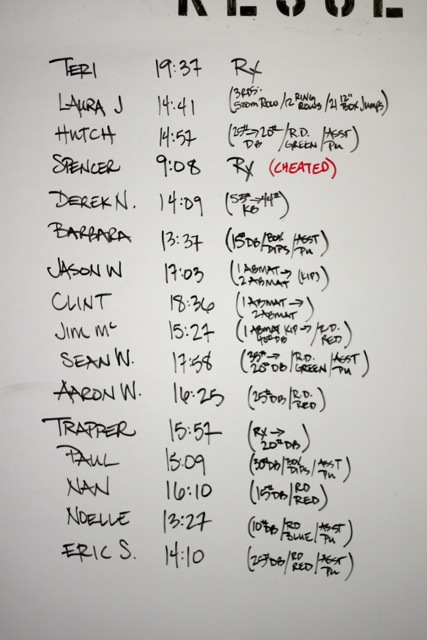 TERI 19:37 RX
LAURA J 14:41 (3RDS: 500m ROW/12 RING ROWS/21 12" BOX JUMPS)
HUTCH 14:57 (25#→20# DB/R.D. GREEN/ASST PU)
SPENCER 9:08 RX (CHEATED)
DEREK N. 14:09 (53#→44# KB)
BARBARA 13:37 (15#DB/BOX DIPS/ASST PU)
JASON W 17:03 (1 ABMAT→ 2 ABMAT (KIP))
CLINT 18:36 (1 ABMAT→ 2 ABMAT)
JIM Mc 15:27 (1 ABMAT KIP→/R.D. RED)
SEAN W. 17:58 (35#→ 20#DB/R.D. GREEN/ASST PU)
AARON W. 16:25 (25#DB/R.D. RED)
TRAPPER 15:57 (RX→ 20#DB)
PAUL 15:09 (30#DB/BOX DIPS/ASST PU)
NAN 16:10 (15#DB/RD RED)
NOELLE 13:27 (10#DB/RD BLUE/ASST PU)
ERIC S. 14:10 (25#DB/RD RED/ASST PU)